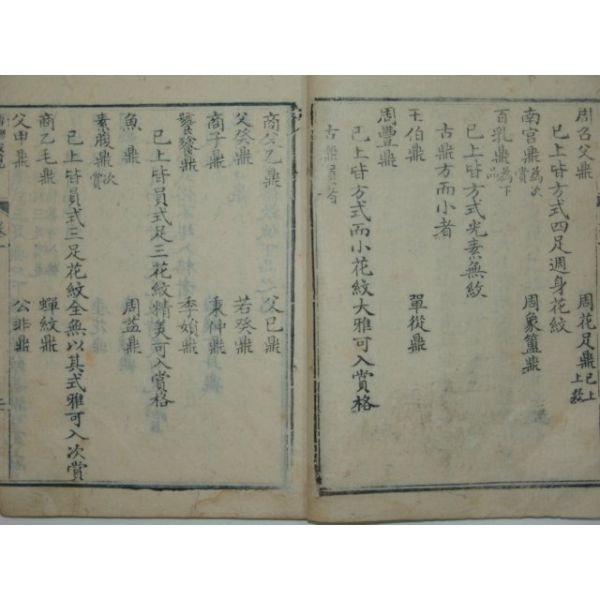 周召父鼎 周花足鼎已上上數
已上皆方式四足週身花紋
南宮鼎為次賞 周象簠鼎
百乳鼎為下品
已上皆方式光素無紋
古鼎方而小者
王伯鼎 單從鼎
周豐鼎
已上皆方式而小花紋大雅可入賞格
古鼎員
商父乙鼎 父已鼎
父癸鼎 若癸鼎
商子鼎 秉仲鼎
饕餮鼎 季娟鼎
已上皆員式足三花紋精美可入賞格
魚鼎 周益鼎
素腹鼎次賞
已上皆員式三足花紋全無以其式雅可入次賞
商乙毛鼎 蟬紋鼎
父甲鼎 公非鼎